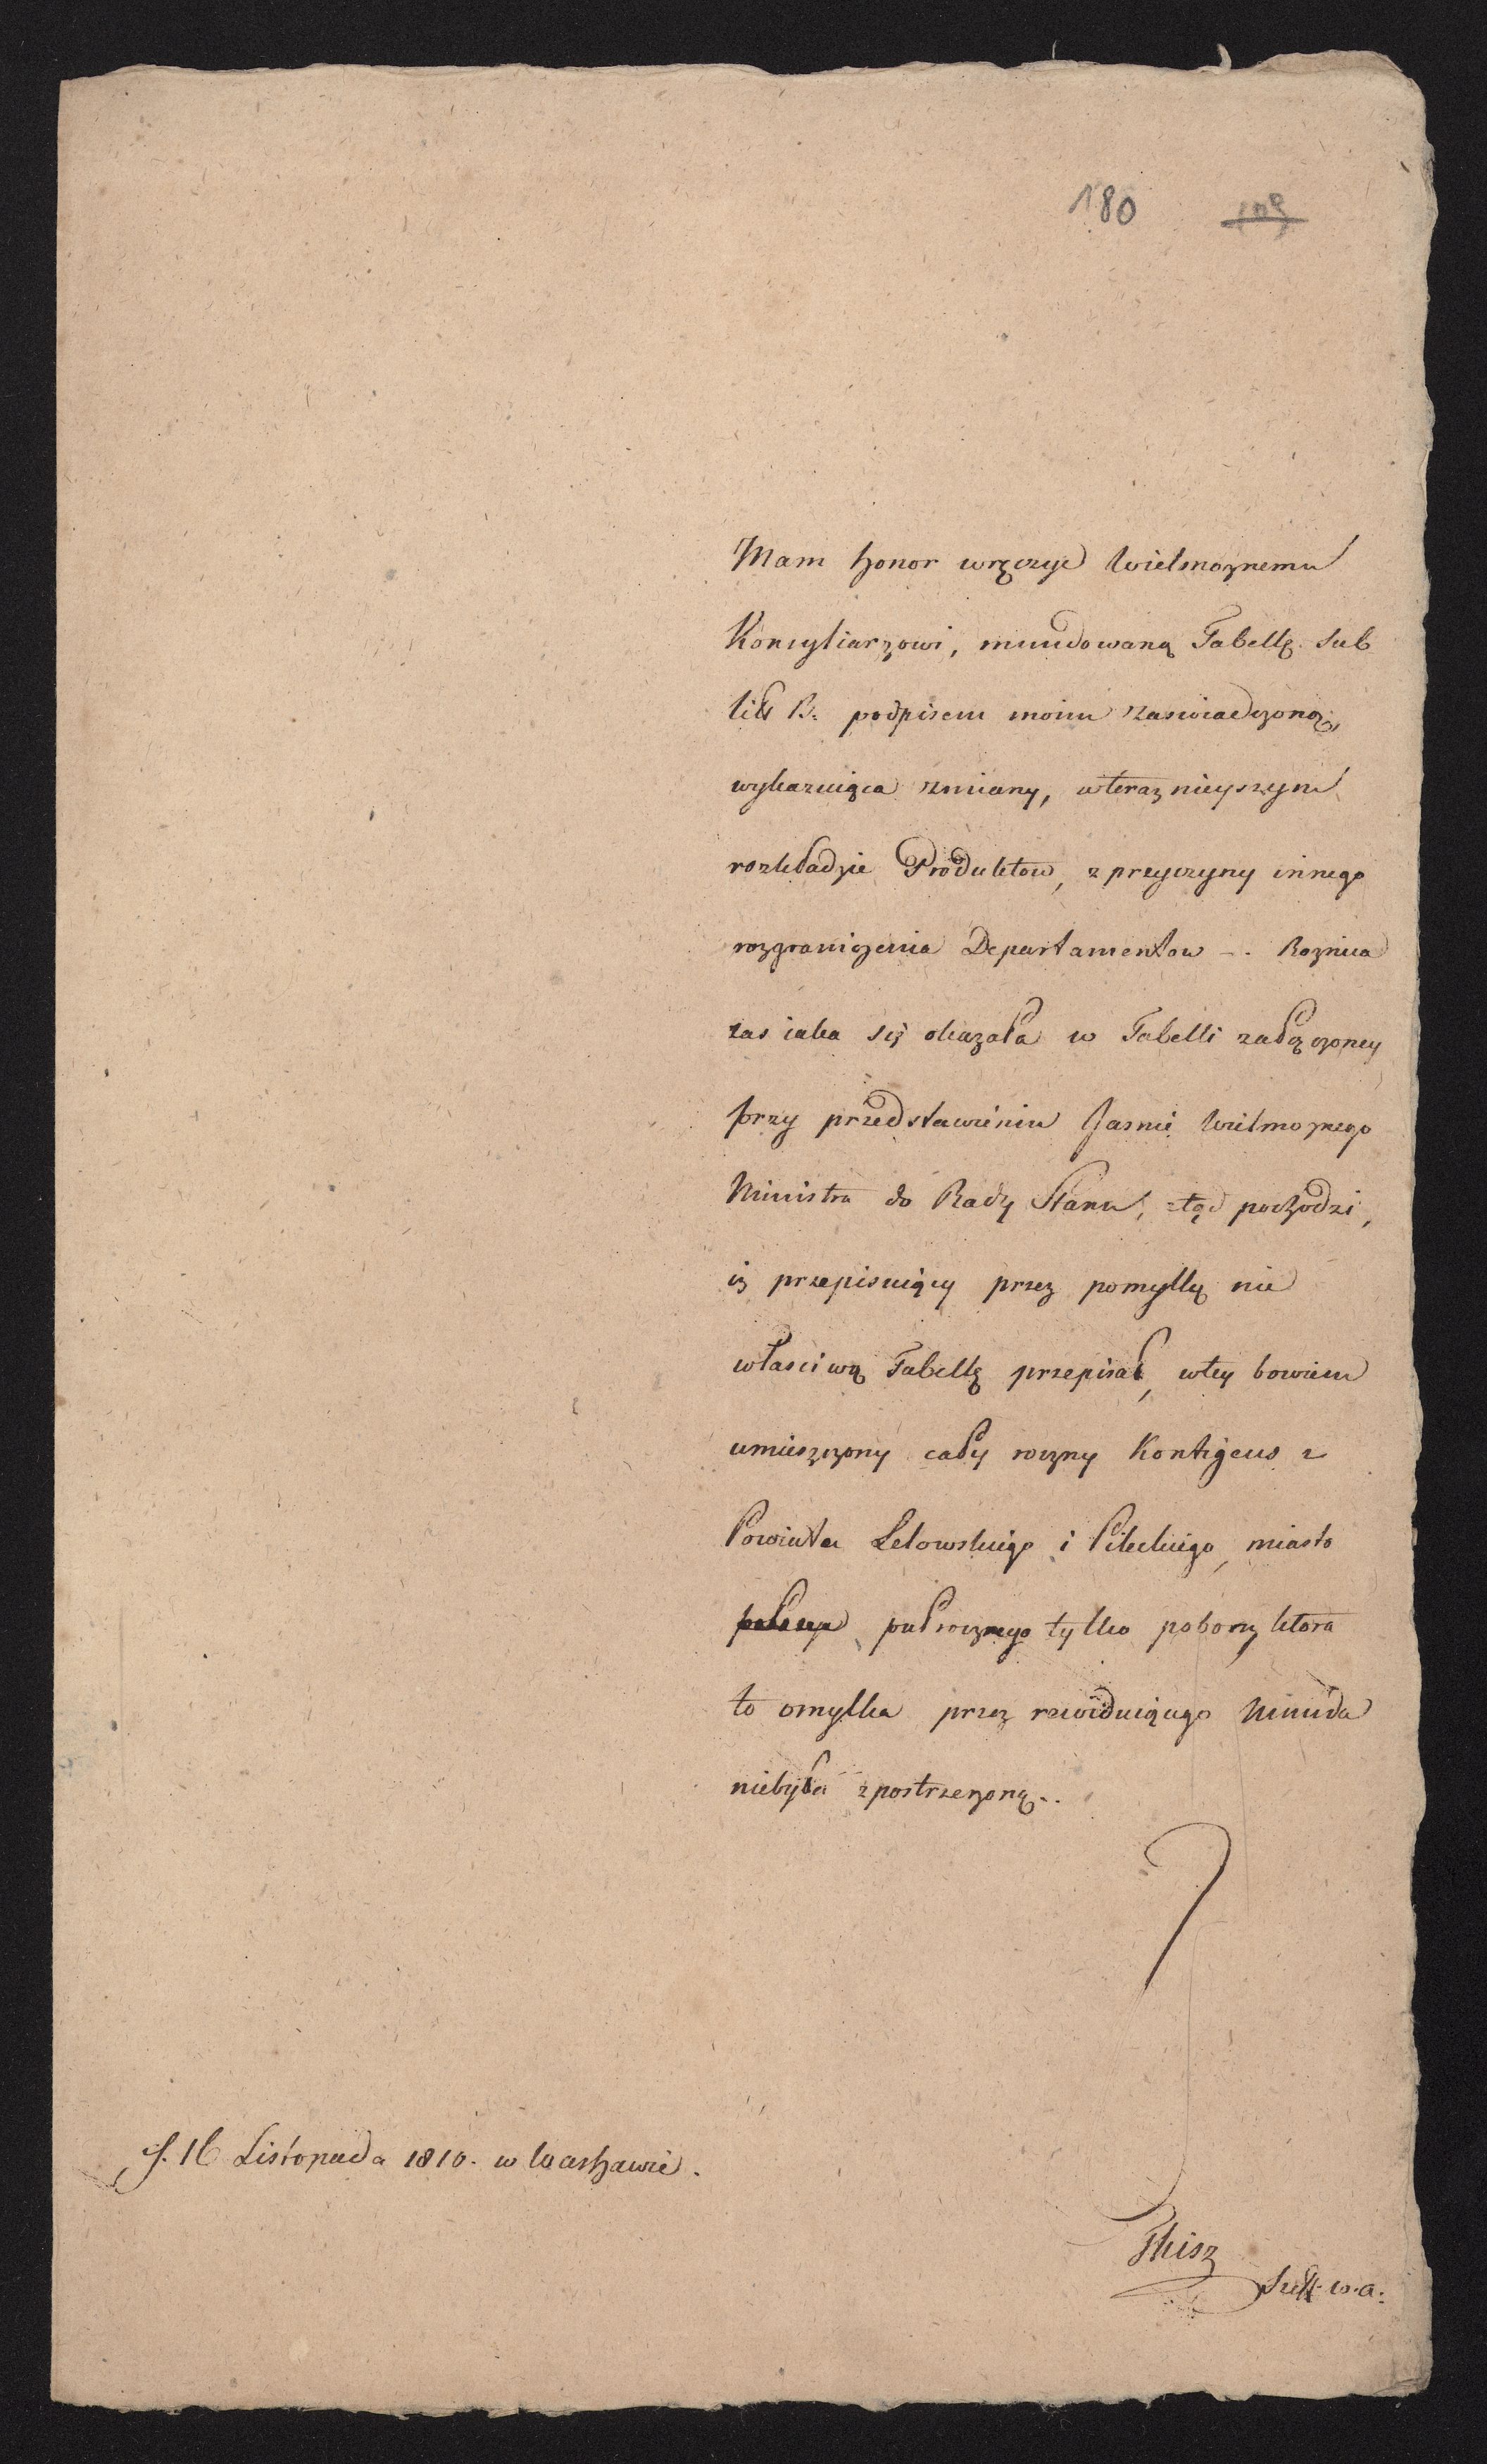 180 109
Mam honor wręczyc Wielmoznemu
Konsyliarzowi, mundowaną Tabellę sub
litt B. podpisem moim zaswiadczoną,
wykazuiąca zmiany, wteraznieyszym
rozkładzie Produktow, z przyczyny innego
rozgraniczenia Departamentow -. Roznica
zas iaka się okazała w Tabelli załączoney
przy przedstawieniu Jasnie Wielmoznego
Ministra do Rady Stanu, ztąd pochodzi,
iz przepisuiący przez pomyłkę nie
własciwą Tabellę przepisał, wtey bowiem
umieszczony cały roczny Kontigens z
Powiatu Lelowskiego i Pileckiego, miasto
pułrocznego tylko poboru, ktora
to omyłka przez rewiduiącego Minuda
niebyła zpostrzezoną..
d. 16 Listopada 1810. w Warszawie.
Thisz